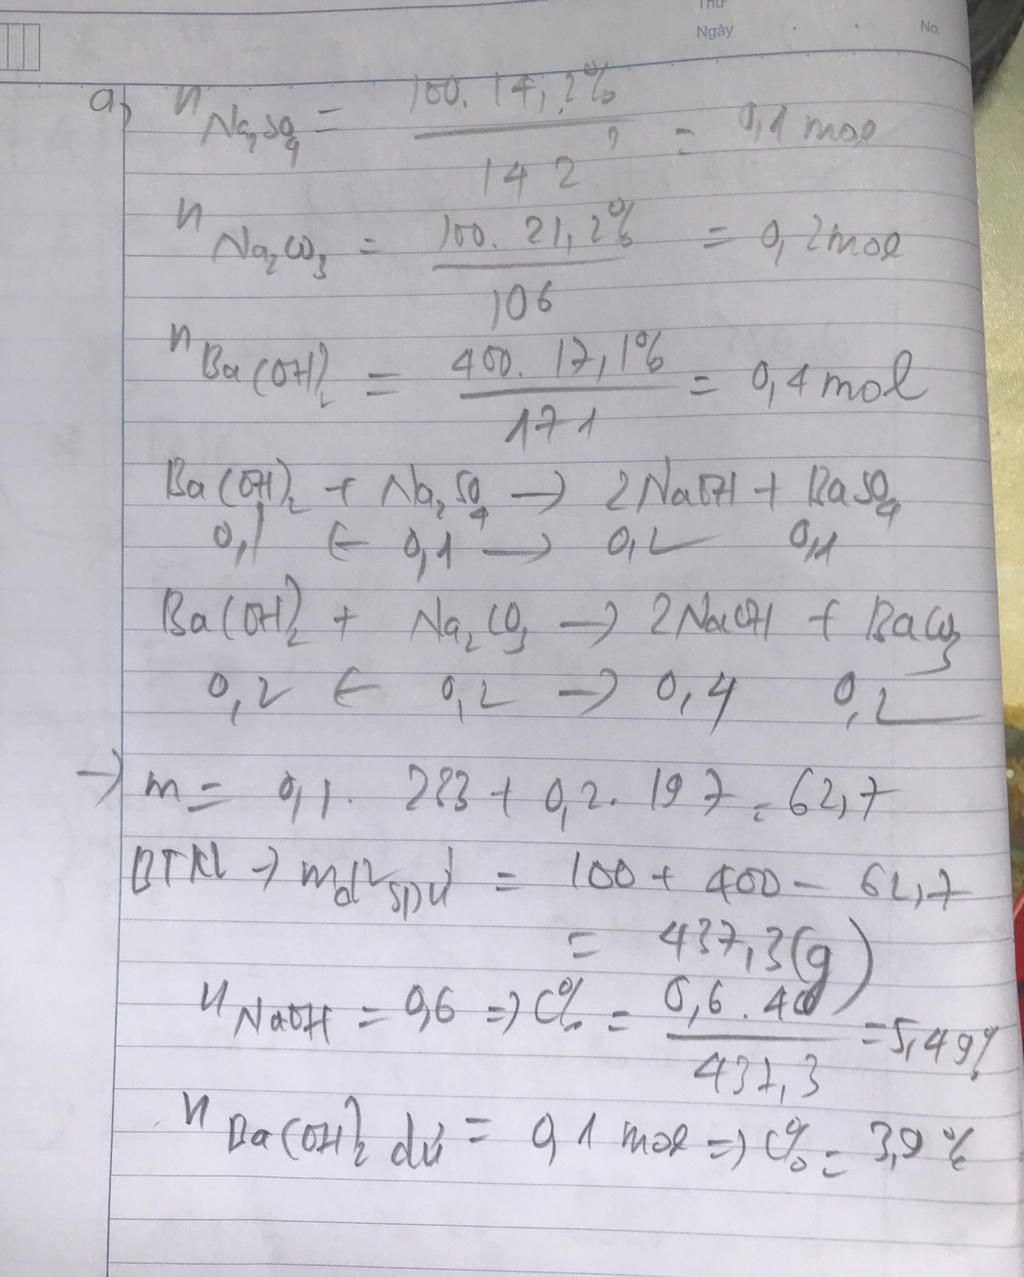 Thứ
Ngày
No.
a, n Na₂SO₄ = 100. 14,2% / 142 = 0,1 mol
n Na₂CO₃ = 100. 21,2% / 106 = 0,2 mol
n Ba(OH)₂ = 400. 17,1% / 171 = 0,4 mol
Ba(OH)₂ + Na₂SO₄ → 2NaOH + BaSO₄
0,1 ← 0,1 → 0,2 0,1
Ba(OH)₂ + Na₂CO₃ → 2NaOH + BaCO₃
0,2 ← 0,2 → 0,4 0,2
→ m = 0,1. 233 + 0,2. 197 = 62,7
BTKL → mdd spứ = 100 + 400 - 62,7
= 437,3(g)
n NaOH = 0,6 => C% = 0,6. 40 / 437,3 = 5,49%
n Ba(OH)₂ dư = 0,1 mol => C% = 3,9%